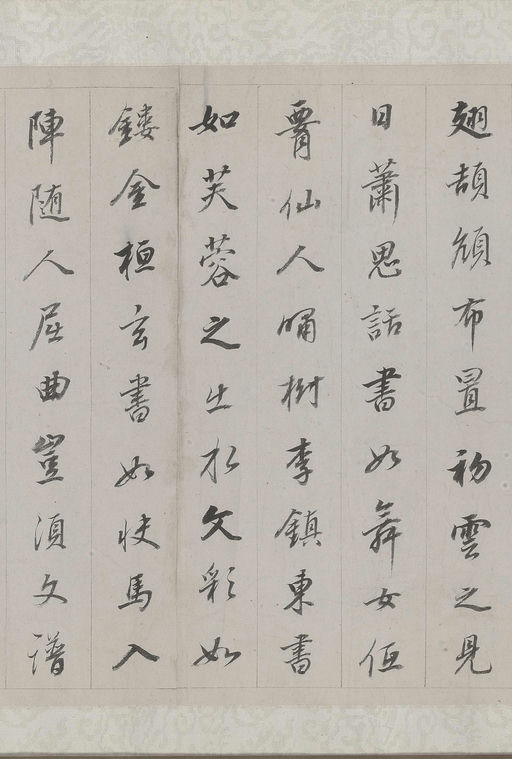 翅頡頏布置初雲之見
日蕭思話書如舞女伍
署仙人嘯樹李鎮東書
如芙蓉之出水文彩如
鏤金桓玄書如快馬入
陣随人屈曲豈湏文譜